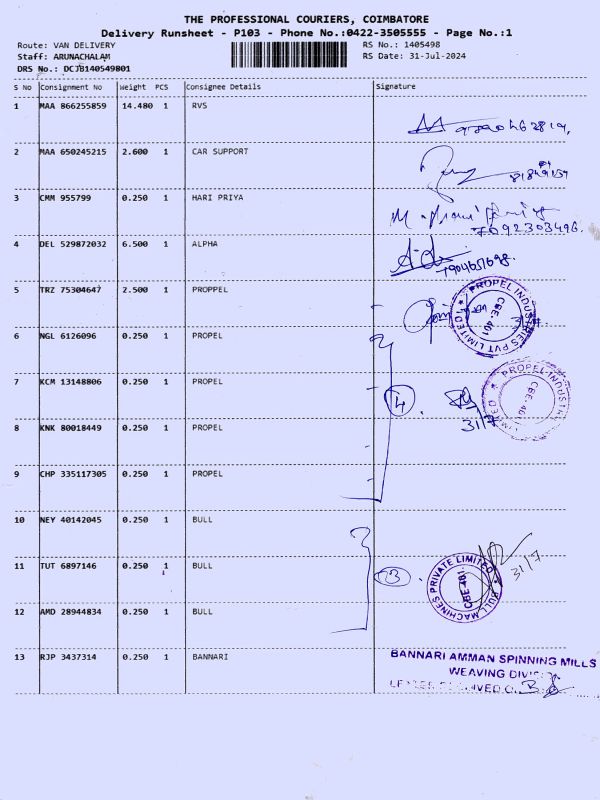 THE PROFESSIONAL COURIERS, COIMBATORE
Delivery Runsheet - P103 - Phone No.:0422-3505555 - Page No.:1
Route: VAN DELIVERY RS No.: 1405498
Staff: ARUNACHALAM RS Date: 31-Jul-2024
DRS No.: DCJB140549801
S No Consignment No Weight PCS Consignee Details Signature
1 MAA 866255859 14.480 1 RVS
2 MAA 650245215 2.600 1 CAR SUPPORT
3 CMM 955799 0.250 1 HARI PRIYA
7092303496.
4 DEL 529872032 6.500 1 ALPHA
5 TRZ 75304647 2.500 1 PROPPEL
PROPEL INDUSTRIES PVT LIMITED CBE-401
6 NGL 6126096 0.250 1 PROPEL
7 KCM 13148806 0.250 1 PROPEL
4 31/7 PROPEL INDUSTR LIMITED CBE-401
8 KNK 80018449 0.250 1 PROPEL
9 CHP 335117305 0.250 1 PROPEL
10 NEY 40142045 0.250 1 BULL
11 TUT 6897146 0.250 1 BULL
3 BULL MACHINES PRIVATE LIMITED CBE-401. 31/7
12 AMD 28944834 0.250 1 BULL
13 RJP 3437314 0.250 1 BANNARI
BANNARI AMMAN SPINNING MILLS
WEAVING